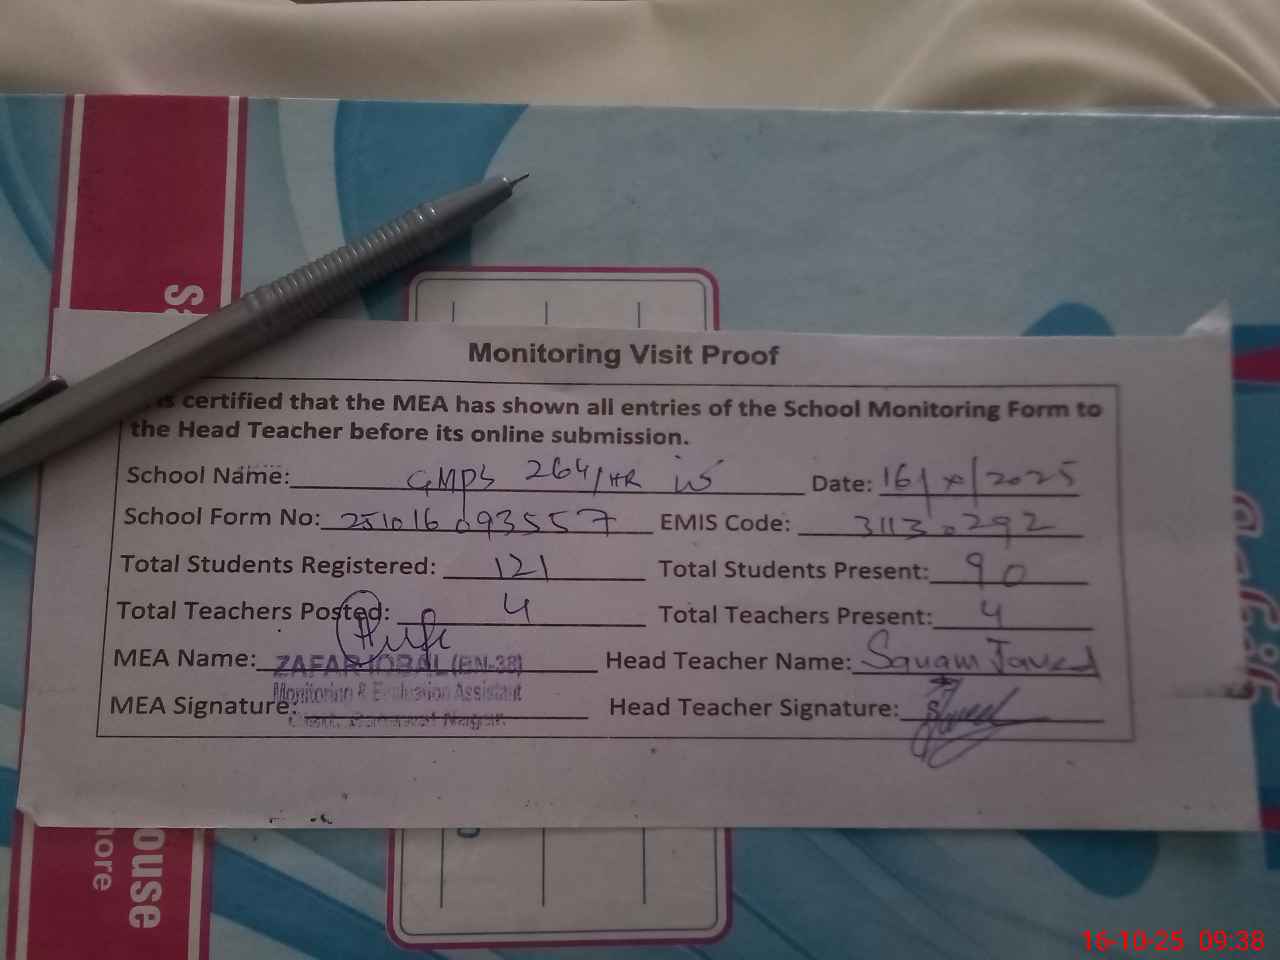 Monitoring Visit Proof
is certified that the MEA has shown all entries of the School Monitoring Form to
the Head Teacher before its online submission.
School Name: GMPS 264/HR W Date: 16/x/2025
School Form No: 251016093557 EMIS Code: 31130292
Total Students Registered: 121 Total Students Present: 90
Total Teachers Posted: 4 Total Teachers Present: 4
MEA Name: ZAFAR IQBAL (BN-38) Head Teacher Name: Javed
Monitoring & Evaluation Assistant
MEA Signature: Nagar. Head Teacher Signature:
ouse
more
16-10-25 09:38